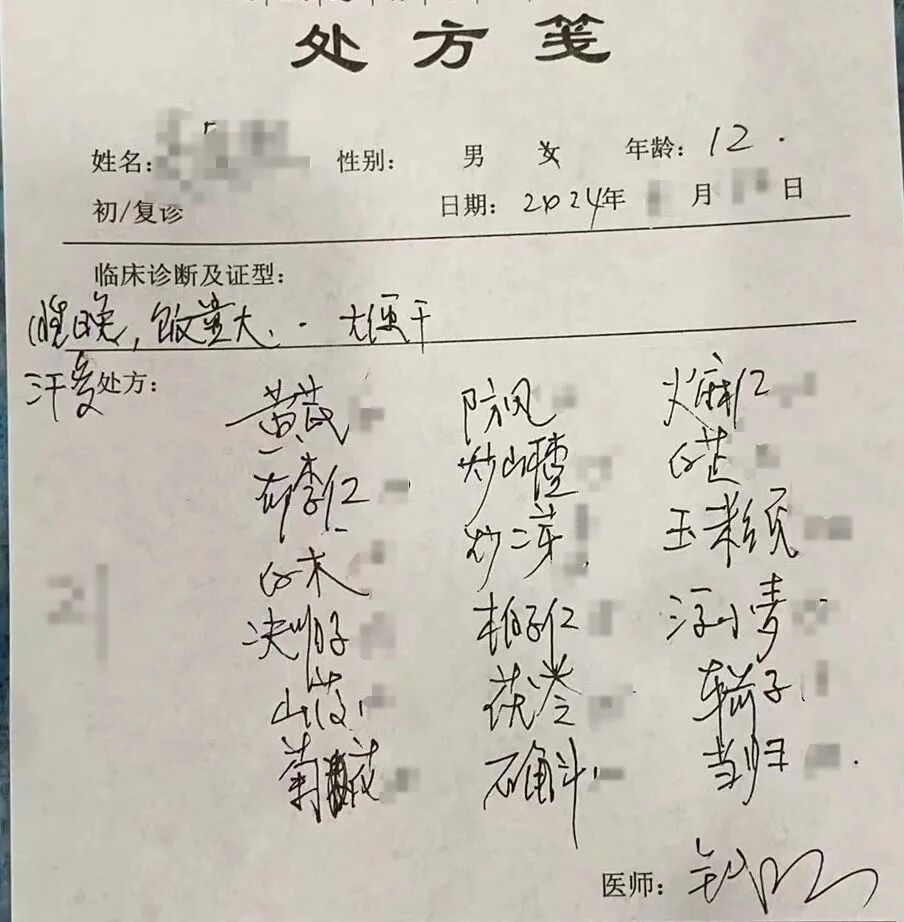 处方笺
姓名: 性别: 男 女 年龄: 12.
初/复诊 日期: 2024年 月 日
临床诊断及证型:
睡晚,饭量大、大便干
汗多 处方:
黄芪 防风 火麻仁
郁李仁 炒山楂 白芷
白术 炒二芽 玉米须
决明子 柏子仁 浮小麦
山药 茯苓 车前子
菊花 石斛 当归
医师: